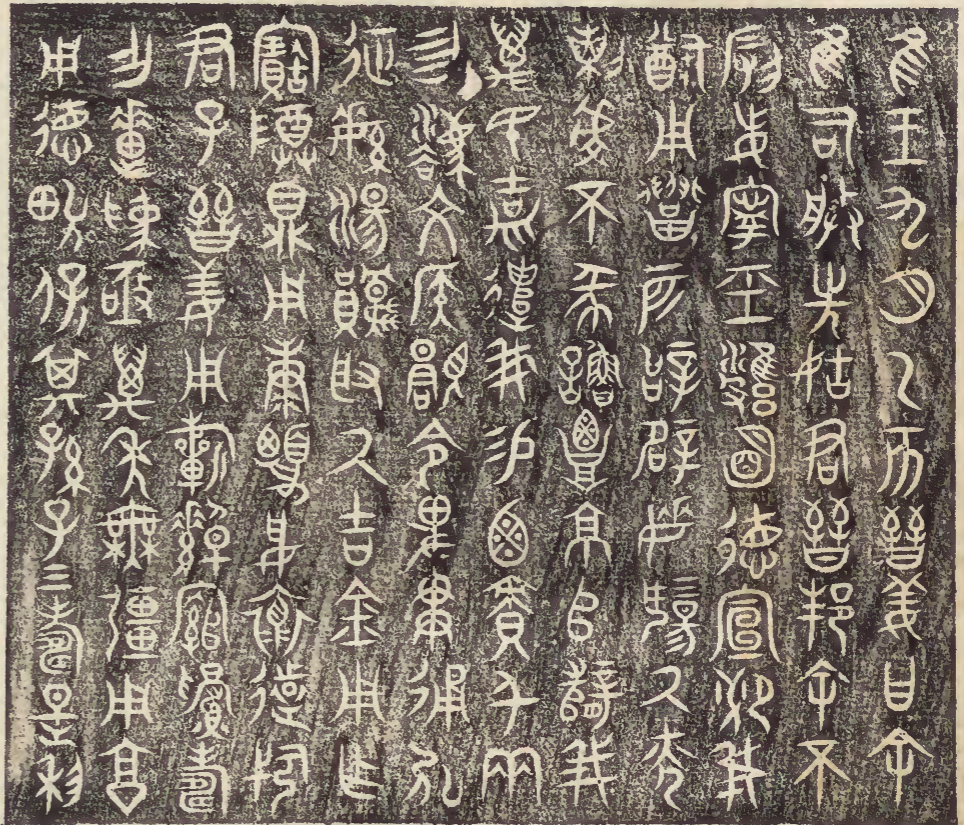 隹王九月乙亥晉姜曰余
隹司朕先姑君晉邦余不
叚妄寧巠雝明德宣卹我
猷用召匹辝辟敏揚氒光
剌虔不墜魯覃京𠂤辥我
萬民嘉遣我易鹵責千兩
勿灋文侯顯令卑貫通弘
征繁湯取氒吉金用乍
寶尊鼎用康柔妥懷遠邇
君子晉姜用祈綽綰眉壽
乍疐為亟萬年無疆用享
用德畯保其孫子三壽是利